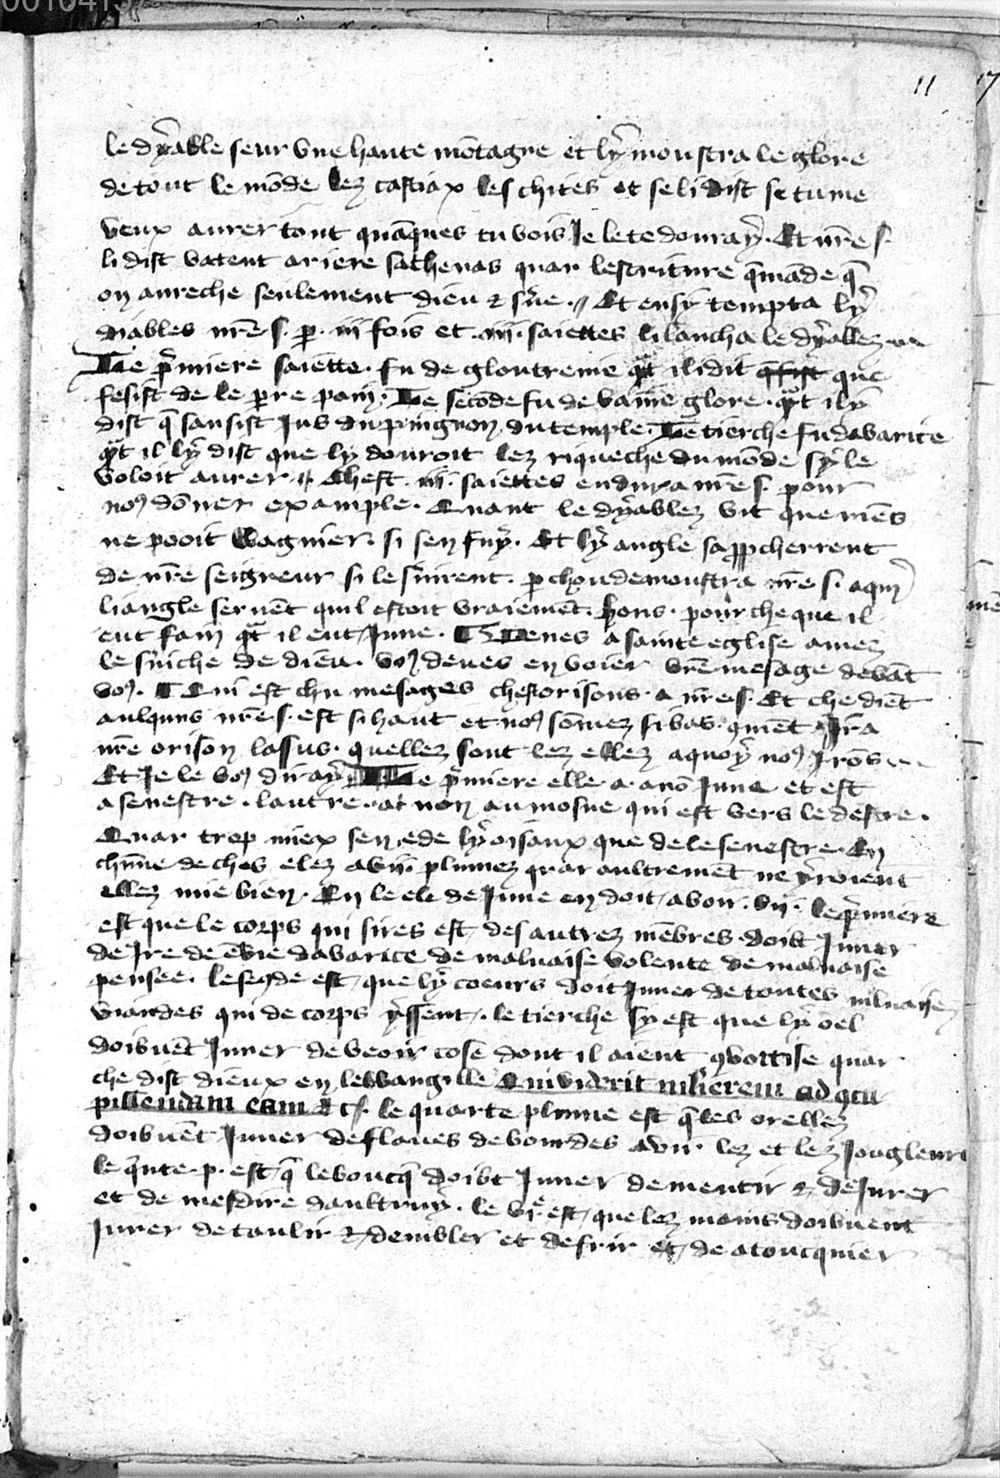 0010415
11
17
le dyable seur vne haute mōtagne et ly moustra le glore
de tout le mōde lez castiax les chites et se li dist se tu me
veux aurer tout quāques tu vois Je le te douray. Et nr̄e s.
li dist vatent ariere sathenas quar lescriture 9māde q̄
on aureche seulement dieu & s̄ue. // Et ensy tempta ly
diables nr̄e s. p. iij fois et .iij. saiettes li lancha le dyablez
Le p̄miere saiette. fu de gloutrenie qt̄ il idit que
fesist de le pere pain. Le secōde fu de vaine glore. qt̄ il y
dist q̄ sausist Jus du pingnon du temple. Le tierche fu davarice
qt̄ il ly dist que ly douroit lez riqueche du mōde sy le
voloit aurer // Chest .iij. saiettes endura nr̄e s. pour
no9 dōner example. Quant le dyablez vit que riens
ne pooit Wagnier. si sen fuy. Et ly angle sapp̄cherrent
de nr̄e seigneur si le s̄uirent. p chou demoustra nr̄e s. a quy
li angle seruēt quil estoit vraiement hons. pour che que il
eut fain qt̄ il eut June. Venes a sainte eglise ames
le s̄uiche de dieu. vo9 deues envoier vr̄e mesage devāt
vo9. Qui est chu mesages chest orisons. a nr̄e s. Et che diēt
aulquns nr̄e s. est si haut et no9 sōmez si bas. 9mēt Jra
nr̄e orison lassus. quellez sont lez ellez a quoy no9 Jrōs
Et Je le vo9 diray Le p̄miere elle. a. anō June et est
a senestre. lautre. at non aumosne qui est vers le destre.
Quar trop miex sen ede ly oisaux que de le senestre. En
chūne de ches elez a vij. plumez quar aultremēt ne yroient
ellez mie bien. En le ele de June en doit avoir. vij. le p̄miere
est que le corps qui sires est des autrez mēbres doibt Juner
de Jre de ēvie davarice de malvaise volente de malvaise
pensee. le segōde est que ly coeurs doit Juner de toutes malvaise
viandes qui de corps yssent. le tierche sy est que ly oel
doibuēt Juner de veoir cose dont il aient 9voitise quar
che dist dieux en levvangille Qui viderit mulierem ad 9cu
piscendam eam & c. le quarte plume est q̄ les orellez
doibuēt Juner de flaues de bourdes a oir lez et lez Jougleurs
le q̄nte. p. est q̄ le boucq̄ doibt Juner de mentir & de Jurer
et de mesdire daultruy. le vjᵉ est que lez mains doibuent
Juner de taulir & dembler et de frir et de atoucquier